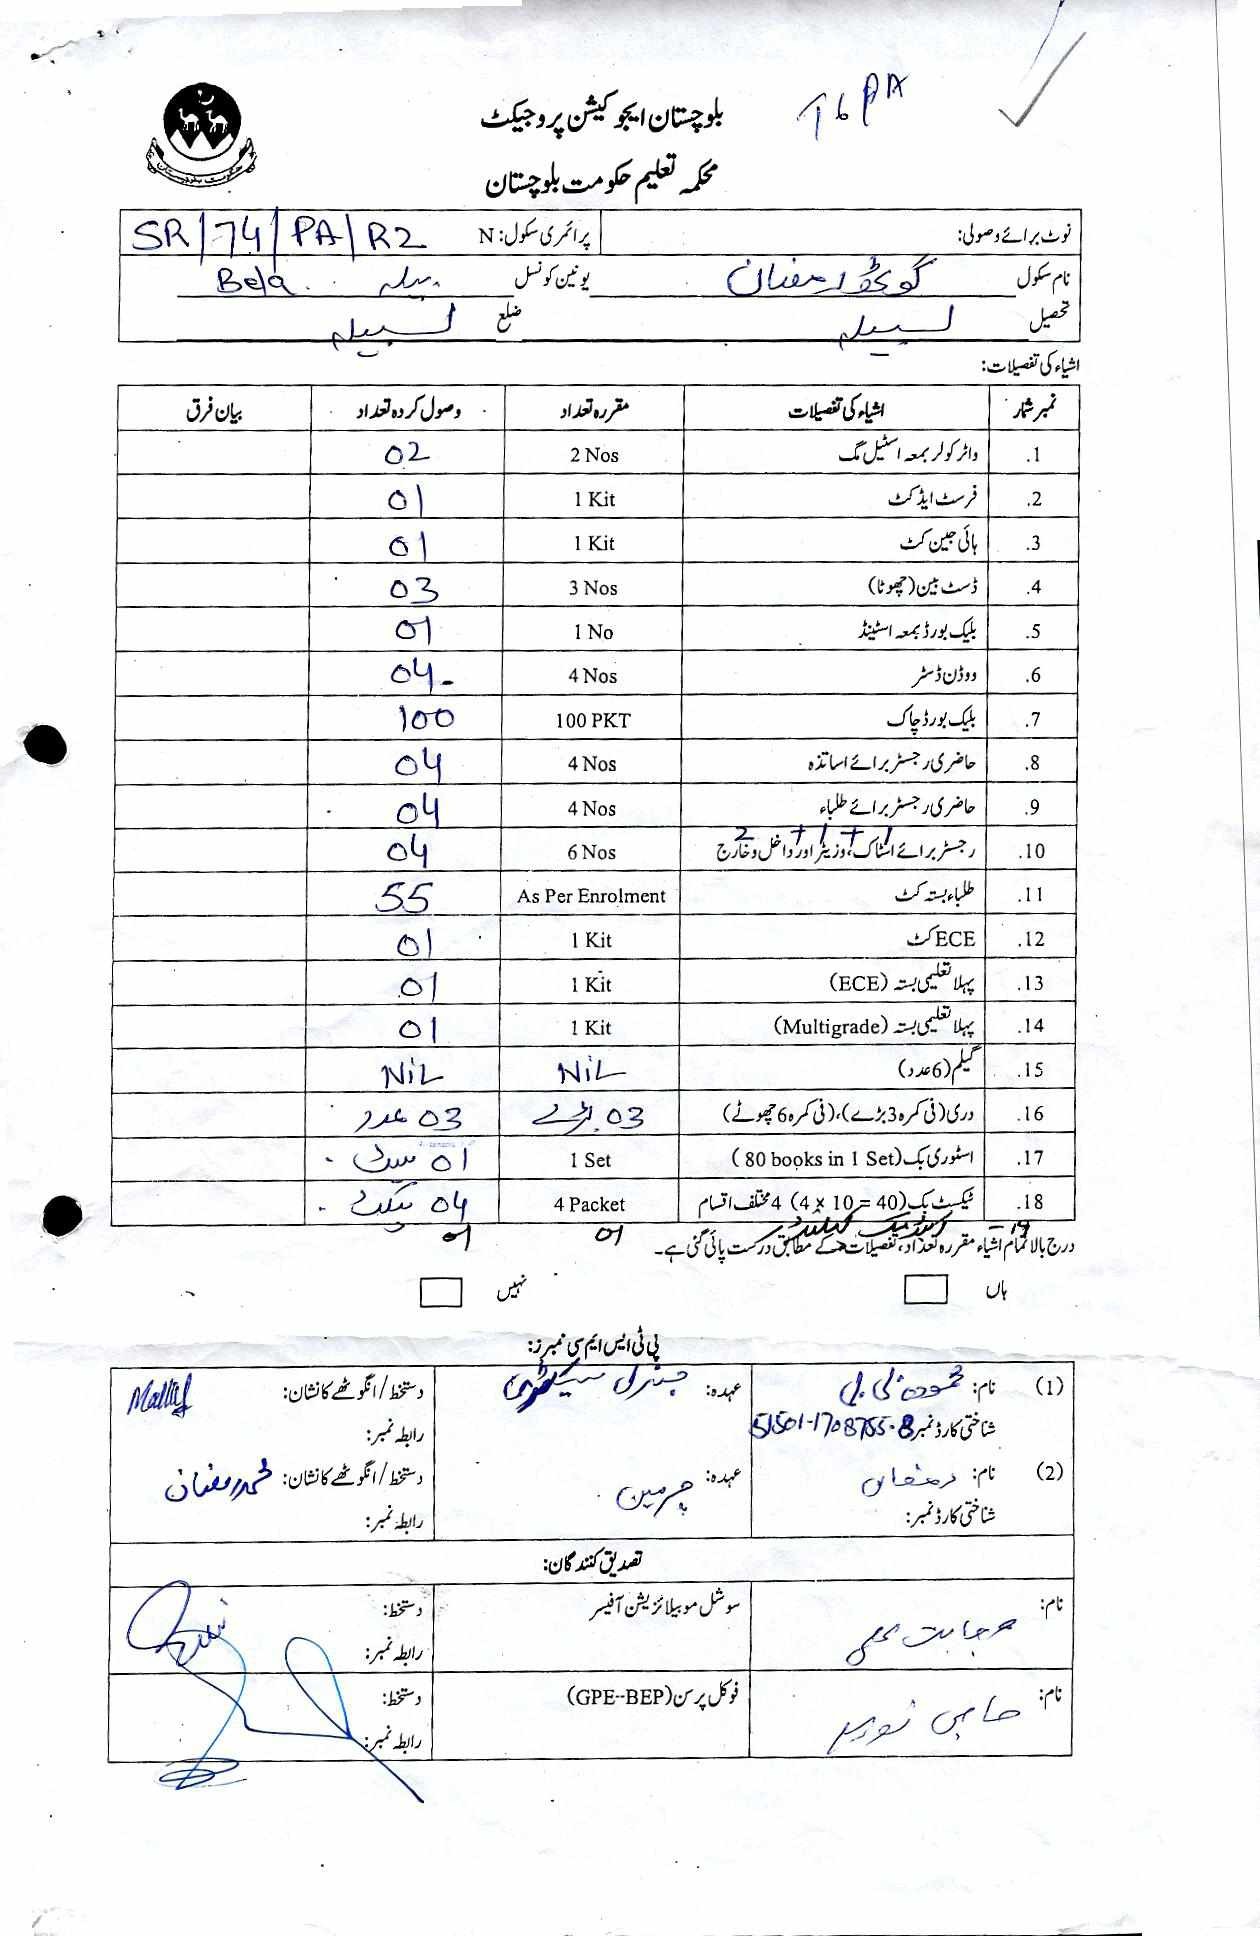 بلوچستان ایجوکیشن پروجیکٹ
محکمہ تعلیم حکومت بلوچستان
نوٹ برائے وصولی: پرائمری سکول: N SR/74/PA/R2
نام سکول گوٹھ رمضان یونین کونسل بیلہ Bela
تحصیل لسبیلہ ضلع لسبیلہ
اشیاء کی تفصیلات:
نمبر شمار اشیاء کی تفصیلات مقررہ تعداد وصول کردہ تعداد بیان فرق
1. واٹر کولر بمعہ اسٹیل مگ 2 Nos 02
2. فرسٹ ایڈ کٹ 1 Kit 01
3. ہائی جین کٹ 1 Kit 01
4. ڈسٹ بین (چھوٹا) 3 Nos 03
5. بلیک بورڈ بمعہ اسٹینڈ 1 No 01
6. ووڈن ڈسٹر 4 Nos 04
7. بلیک بورڈ چاک 100 PKT 100
8. حاضری رجسٹر برائے اساتذہ 4 Nos 04
9. حاضری رجسٹر برائے طلباء 4 Nos 04
2 + 1 + 1
10. رجسٹر برائے اسٹاک، وزیٹر اور داخل و خارج 6 Nos 04
11. طلباء بستہ کٹ As Per Enrolment 55
12. ECE کٹ 1 Kit 01
13. پہلا تعلیمی بستہ (ECE) 1 Kit 01
14. پہلا تعلیمی بستہ (Multigrade) 1 Kit 01
15. گیلم (6 عدد) NiL NiL
16. دری (فی کمرہ 3 بڑے)، (فی کمرہ 6 چھوٹے) 03 بڑے 03 عدد
17. اسٹوری بک (80 books in 1 Set) 1 Set 01 سیٹ
18. ٹیکسٹ بک (4 x 10 = 40) 4 مختلف اقسام 4 Packet 04 پیکٹ
19 01 01
درج بالا تمام اشیاء مقررہ تعداد، تفصیلات کے مطابق درست پائی گئی ہے۔
ہاں نہیں
پی ٹی ایس ایم سی نمبرز:
(1) نام: محمودہ بی بی عہدہ: جنرل سیکٹری دستخط/انگوٹھے کا نشان:
شناختی کارڈ نمبر 51501-1708755-8 رابطہ نمبر:
(2) نام: رمضان عہدہ: چرمین دستخط/انگوٹھے کا نشان: محمد رمضان
شناختی کارڈ نمبر: رابطہ نمبر:
تصدیق کنندگان:
نام: سوشل موبیلائزیشن آفیسر دستخط:
رابطہ نمبر:
نام: حاجی فوکل پرسن (GPE--BEP) دستخط:
رابطہ نمبر: